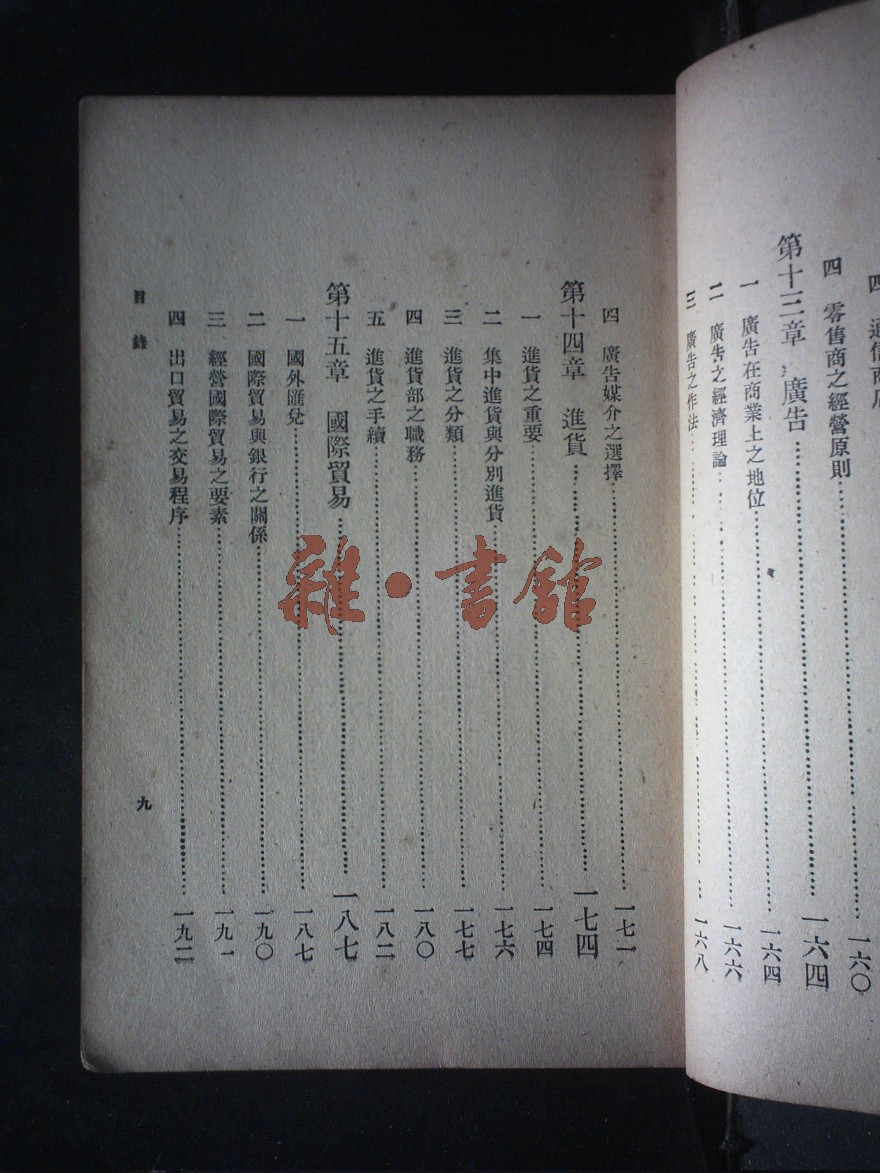 四　零售商之經營原則……一六〇
第十三章　廣告……一六四
一　廣告在商業上之地位……一六四
二　廣告之經濟理論……一六六
三　廣告之作法……一六八
四　廣告媒介之選擇……一七一
第十四章　進貨……一七四
一　進貨之重要……一七四
二　集中進貨與分別進貨……一七六
三　進貨之分類……一七七
四　進貨部之職務……一八〇
五　進貨之手續……一八二
第十五章　國際貿易……一八七
一　國外匯兌……一八七
二　國際貿易與銀行之關係……一九〇
三　經營國際貿易之要素……一九一
四　出口貿易之交易程序……一九二
目錄
九
雜·書館